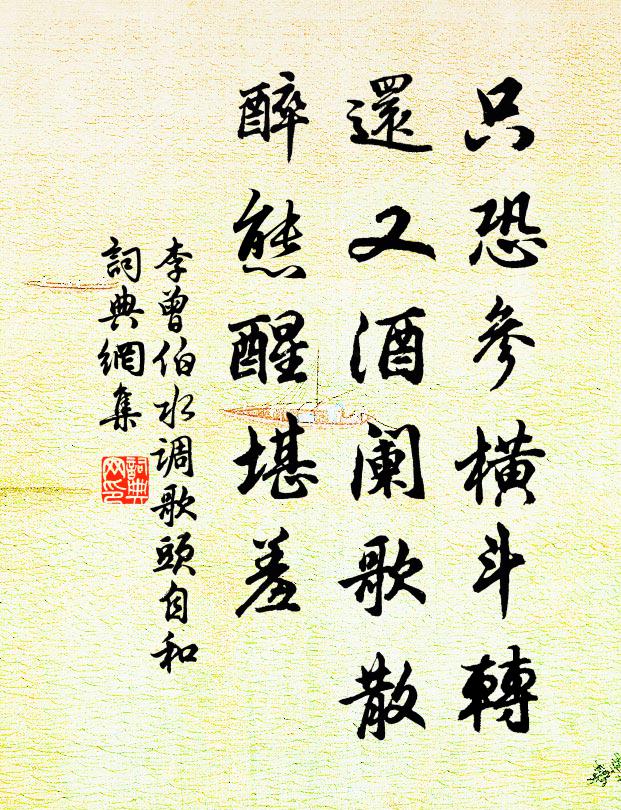 只恐參橫斗轉
還又酒阑歌散
醉態醒堪羞
李曾伯水调歌頭自和
詞典網集
詞典网印